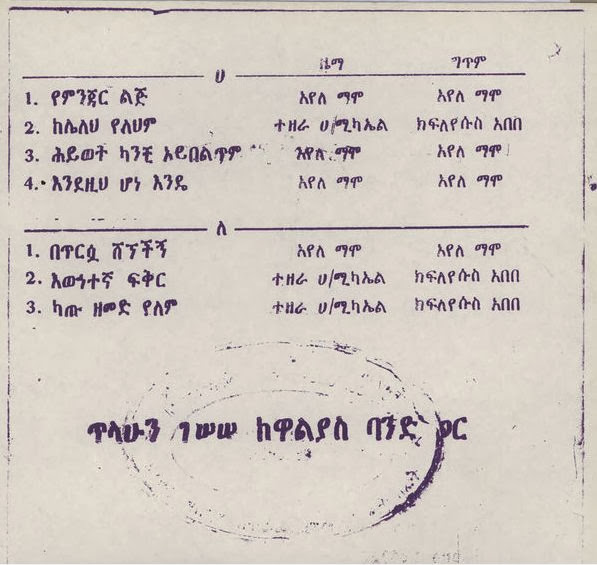 ዜማ ግጥም
ሀ
1. የምንጃር ልጅ አየለ ማሞ አየለ ማሞ
2. ከሌለህ የለህም ተዘራ ሀ/ሚካኤል ክፍለየሱስ አበበ
3. ሕይወት ካንቺ አይበልጥም አየለ ማሞ አየለ ማሞ
4. እንደዚህ ሆነ እንዴ አየለ ማሞ አየለ ማሞ
ለ
1. በጥርሷ ሸኘችኝ አየለ ማሞ አየለ ማሞ
2. እውነተኛ ፍቅር ተዘራ ሀ/ሚካኤል ክፍለየሱስ አበበ
3. ካጡ ዘመድ የለም ተዘራ ሀ/ሚካኤል ክፍለየሱስ አበበ
ጥላሁን ገሠሠ ከዋልያስ ባንድ ጋር